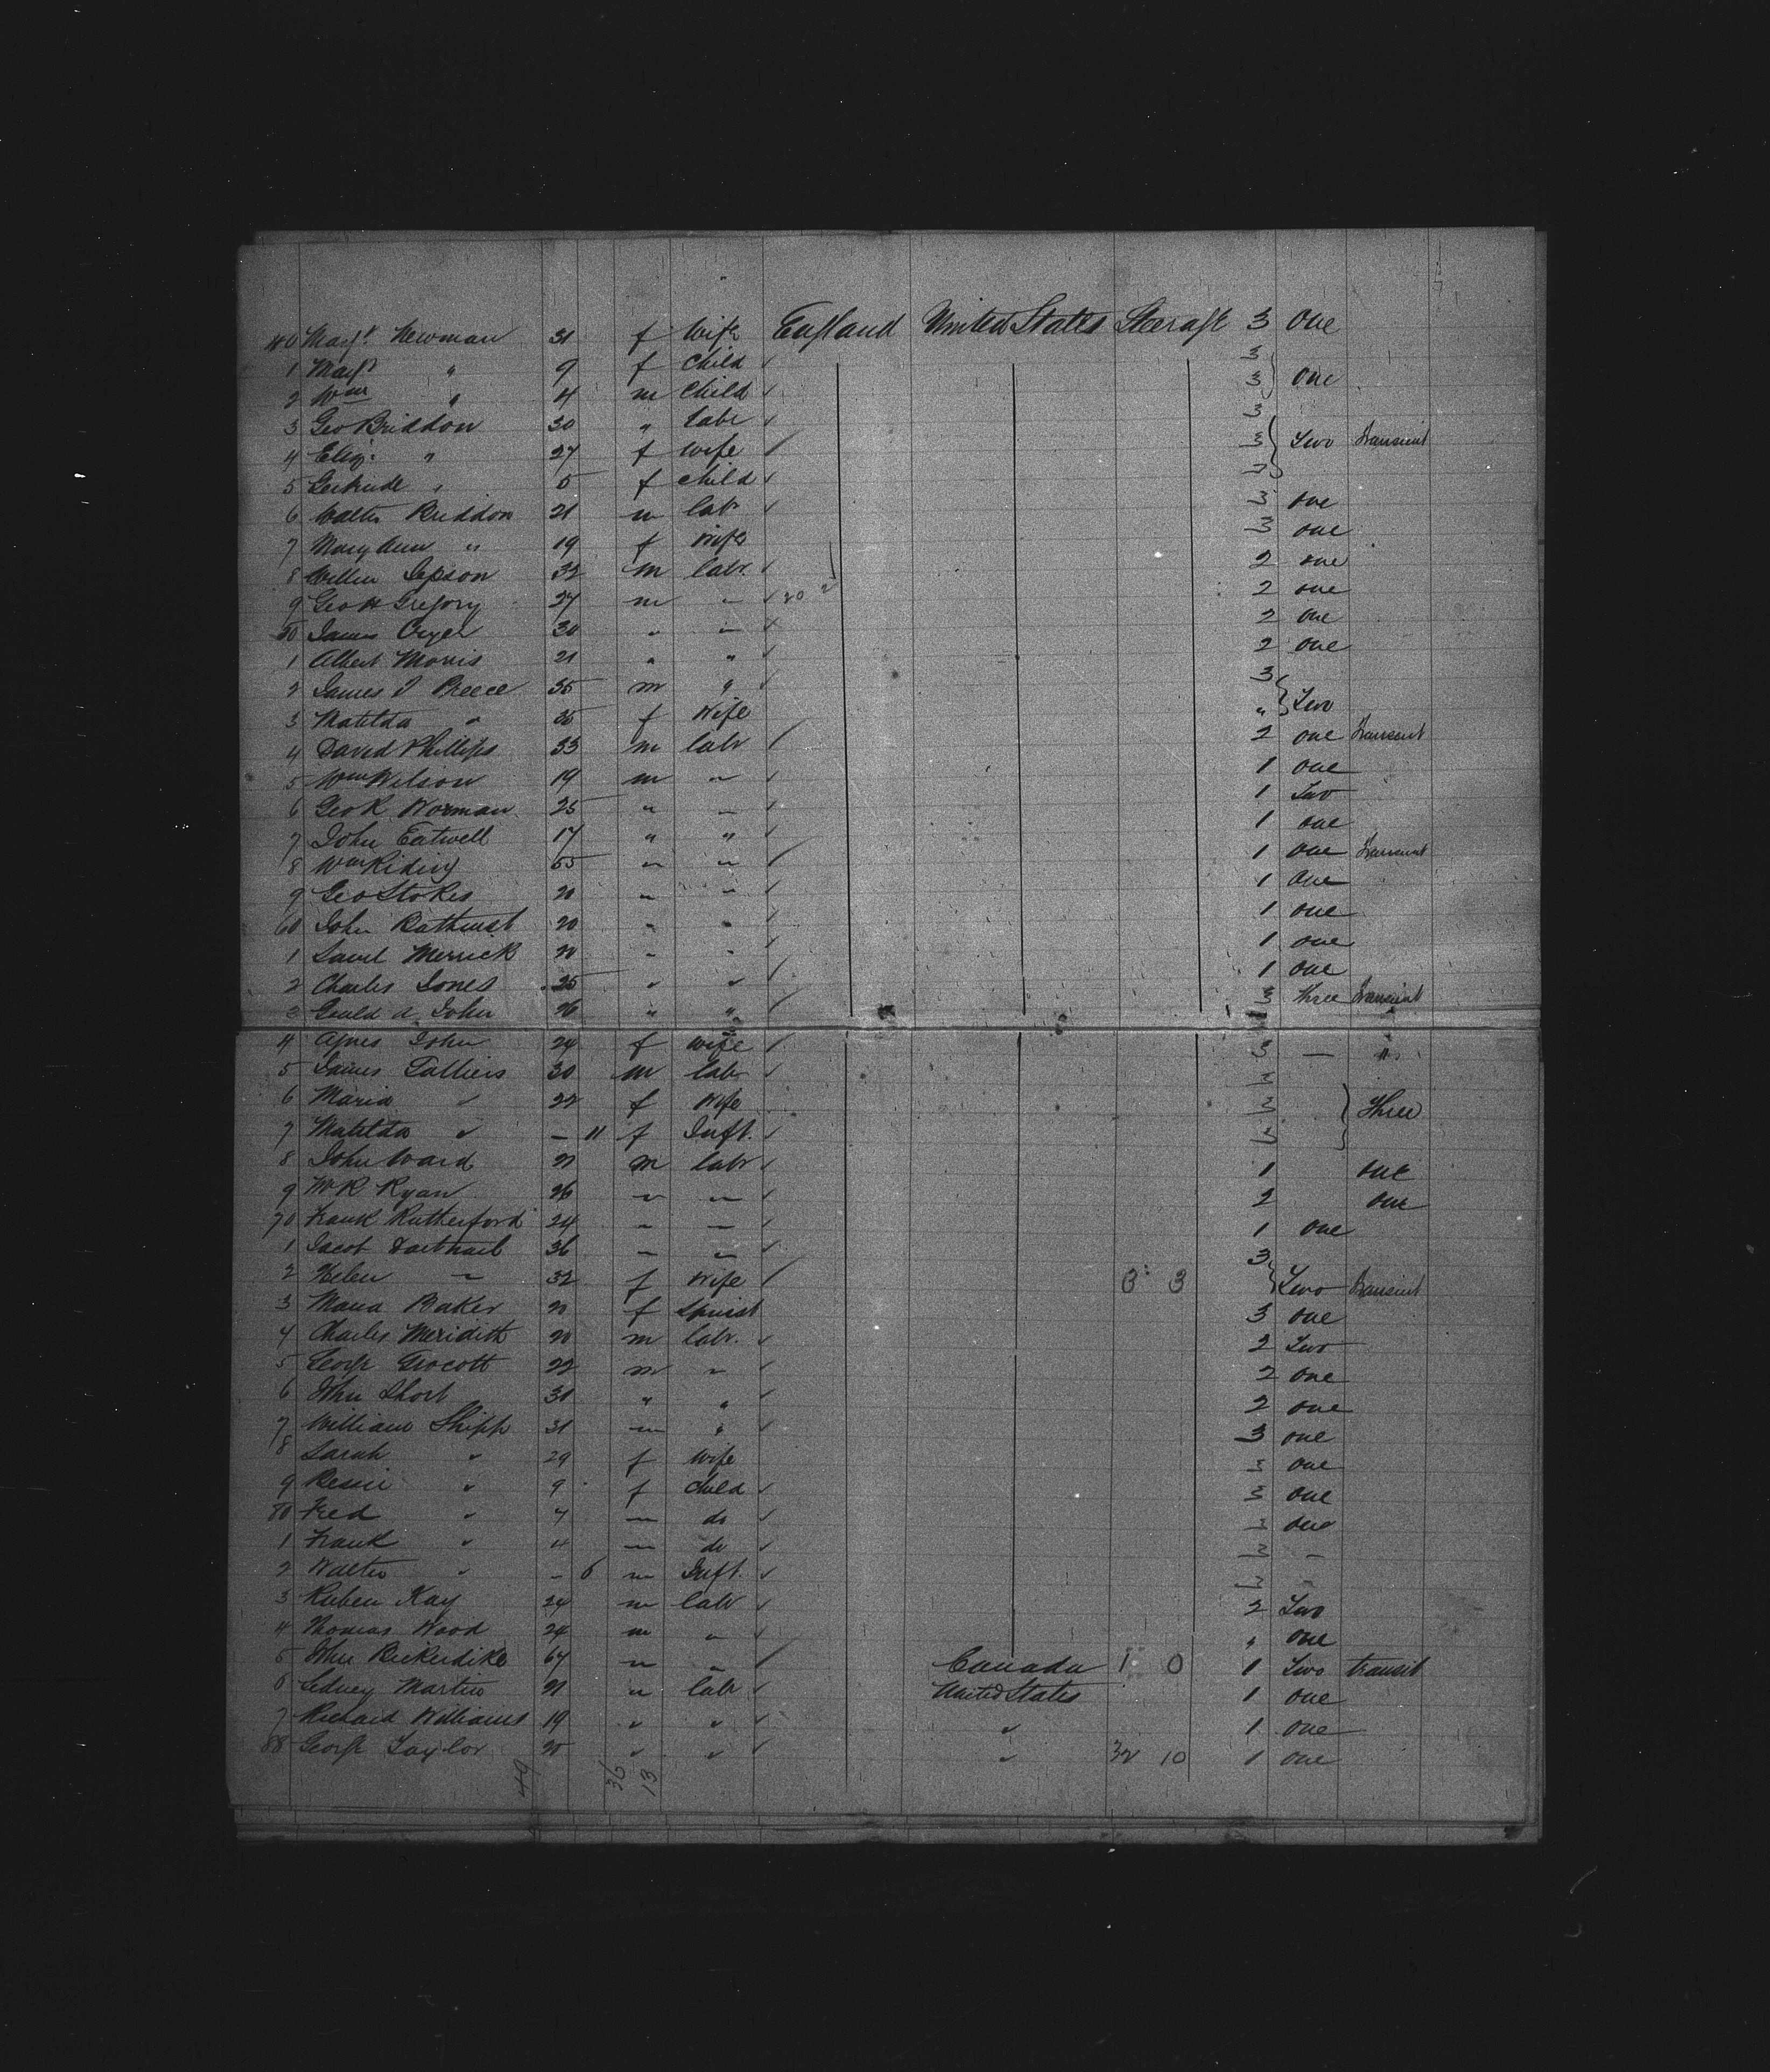 40 Margt. Newman 31 f Wife England United States Steerage 3 One
1 Margt " 9 f Child ✓ 3 } One
2 Wm " 4 m Child ✓ 3
3 Geo Briddon 30 " Labr ✓ 3
4 Eliz. " 27 f Wife / 3 } Two Transient
5 Gertrude " 5 f Child ✓ 3
6 Walter Briddon 21 m Labr ✓ 3 One
7 Mary Ann " 19 f Wife 3 One
8 Jepson 32 m Labr. ✓ 2 One
9 Geo H Gregory 27 m " ✓ 20 2 2 One
50 James 30 " " ✓ 2 One
1 Albert Morris 21 " " ✓ 2 One
2 James J Preece 35 m " ✓ 3
3 Matilda " 35 f Wife " } Two
4 David Phillips 33 m Labr / 2 One Transient
5 Wm Wilson 19 m " ✓ 1 One
6 Geo R Worman 25 " " ✓ 1 Two
7 John Eatwell 17 " " ✓ 1 One
8 Wm Riding 55 " " / 1 One Transient
9 Geo Stokes 20 " " ✓ 1 One
60 John Bathurst 20 " " ✓ 1 One
1 Saml Merrick 20 " " ✓ 1 One
2 Charles Jones 25 " " ✓ 1 One
3 A. John 26 " " / 3 Three Transient
4 Agnes John 24 f Wife / 3 — "
5 James 30 m Labr ✓ 3
6 Maria " 22 f Wife 3 } Three
7 Matilda " — 11 f Inft. ✓ 3
8 John Ward 21 m Labr ✓ 1 One
9 W R Ryan 26 " " ✓ 2 One
70 Frank Rutherford 24 " " ✓ 1 One
1 Jacob 36 " " ✓ 3
2 Helen " 32 f Wife / 3 3 } Two Transient
3 Baker 20 f Spinst 3 One
4 Charles Meridith 20 m Labr. ✓ 2 Two
5 George Grocott 22 m " ✓ 2 One
6 John Short 30 " " ✓ 2 One
7 William Shipp 31 m " ✓ 3 One
8 Sarah " 29 f Wife 3 One
9 Bessie " 9 f Child ✓ 3 One
80 Fred " 7 — do ✓ 3 One
1 Frank " 4 — do ✓ 3 —
2 Walter " — 6 m Inft. ✓ 3 -
3 Ruben Kay 24 m Labr ✓ 2 Two
4 Thomas Wood 24 m " ✓ " One
5 John Bickerdike 64 m " / Canada 1 0 1 Two transit
6 Sidney Martin 21 " Labr ✓ United States 1 One
7 Richard Williams 19 " " ✓ " 1 One
88 George Taylor 20 " " ✓ " 32 10 1 One
49 36 13